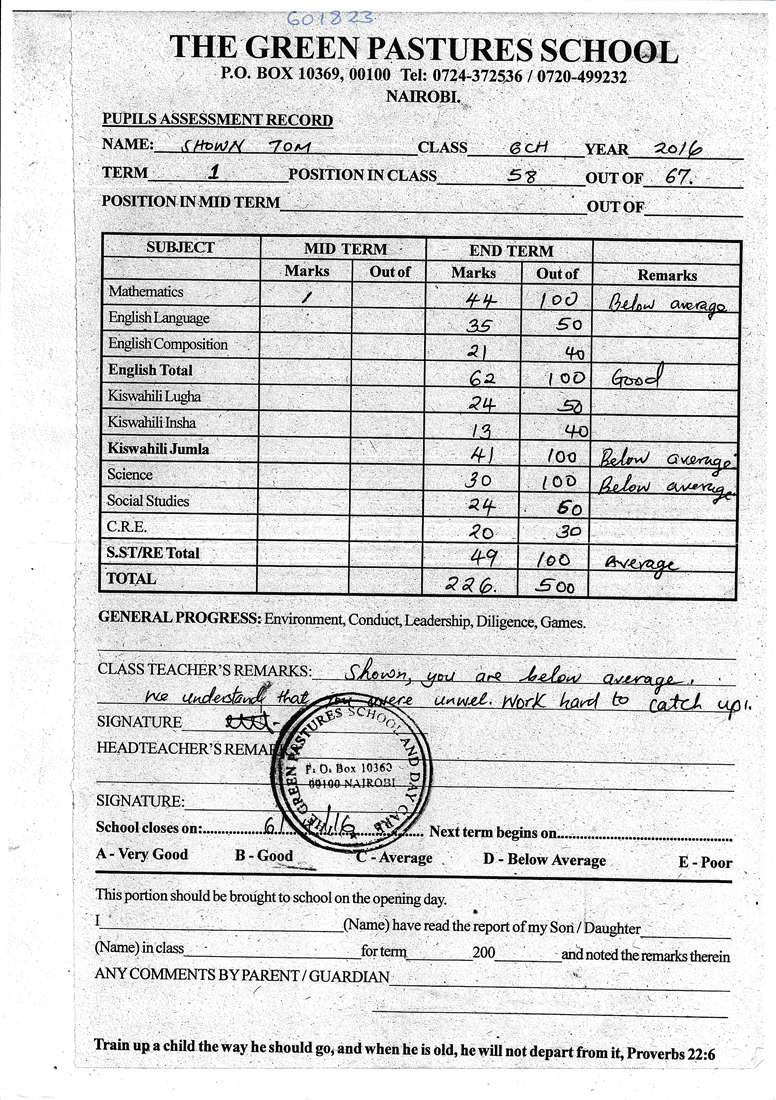 601823
THE GREEN PASTURES SCHOOL
P.O. BOX 10369, 00100 Tel: 0724-372536 / 0720-499232
NAIROBI.
PUPILS ASSESSMENT RECORD
NAME: SHOWN TOM CLASS 6CH YEAR 2016
TERM 1 POSITION IN CLASS 58 OUT OF 67.
POSITION IN MID TERM OUT OF
SUBJECT MID TERM END TERM
Marks Out of Marks Out of Remarks
Mathematics / 44 100 Below average
English Language 35 50
English Composition 21 40
English Total 62 100 Good
Kiswahili Lugha 24 50
Kiswahili Insha 13 40
Kiswahili Jumla 41 100 Below average
Science 30 100 Below average
Social Studies 24 60
C.R.E. 20 30
S.ST/RE Total 49 100 Average
TOTAL 226. 500
GENERAL PROGRESS: Environment, Conduct, Leadership, Diligence, Games.
CLASS TEACHER'S REMARKS: Shown, you are below average.
We understand that you were unwel. Work hard to catch up!.
SIGNATURE
HEADTEACHER'S REMAR
THE GREEN PASTURES SCHOOL AND DAY CARE
P. O. Box 10369
00100 NAIROBI
SIGNATURE:
School closes on: Next term begins on
A - Very Good B - Good C - Average D - Below Average E - Poor
This portion should be brought to school on the opening day.
I (Name) have read the report of my Son / Daughter
(Name) in class for term 200 and noted the remarks therein
ANY COMMENTS BY PARENT / GUARDIAN
Train up a child the way he should go, and when he is old, he will not depart from it, Proverbs 22:6